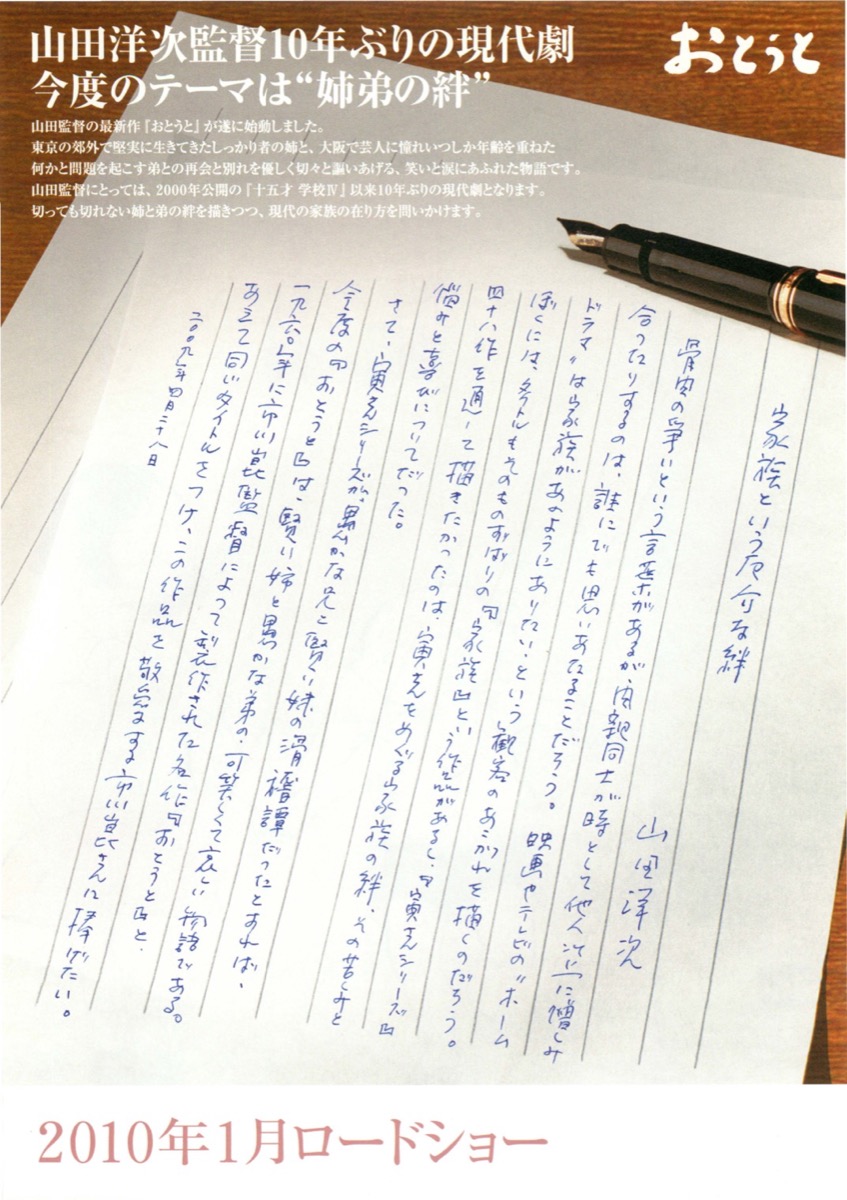 山田洋次監督10年ぶりの現代劇
今度のテーマは“姉弟の絆”
おとうと
山田監督の最新作『おとうと』が遂に始動しました。
東京の郊外で堅実に生きてきたしっかり者の姉と、大阪で芸人に憧れいつしか年齢を重ねた
何かと問題を起こす弟との再会と別れを優しく切々と謳いあげる、笑いと涙にあふれた物語です。
山田監督にとっては、2000年公開の『十五才 学校Ⅳ』以来10年ぶりの現代劇となります。
切っても切れない姉と弟の絆を描きつつ、現代の家族の在り方を問いかけます。
家族という厄介な絆
山田洋次
骨肉の争いという言葉があるが、肉親同士が時として他人以上に憎しみ
合ったりするのは、誰にでも思いあたることだろう。映画やテレビの〝ホーム
ドラマ〟は家族があのようにありたい、という観客のあこがれを描くのだろう。
ぼくには、タイトルもそのものずばりの『家族』という作品があるし、『寅さんシリーズ』
四十八作を通して描きたかったのは、寅さんをめぐる家族の絆、その苦しみと
悩みと喜びについてだった。
さて、寅さんシリーズが、愚かな兄と賢い妹の滑稽譚だったとあれば、
今度の『おとうと』は、賢い姉と愚かな弟の、可笑しくて哀しい物語である。
一九六〇年に市川崑監督によって製作された名作『おとうと』と、
あえて同じタイトルをつけ、この作品を敬愛する市川崑さんに捧げたい。
二〇〇九年四月二十八日
2010年1月ロードショー